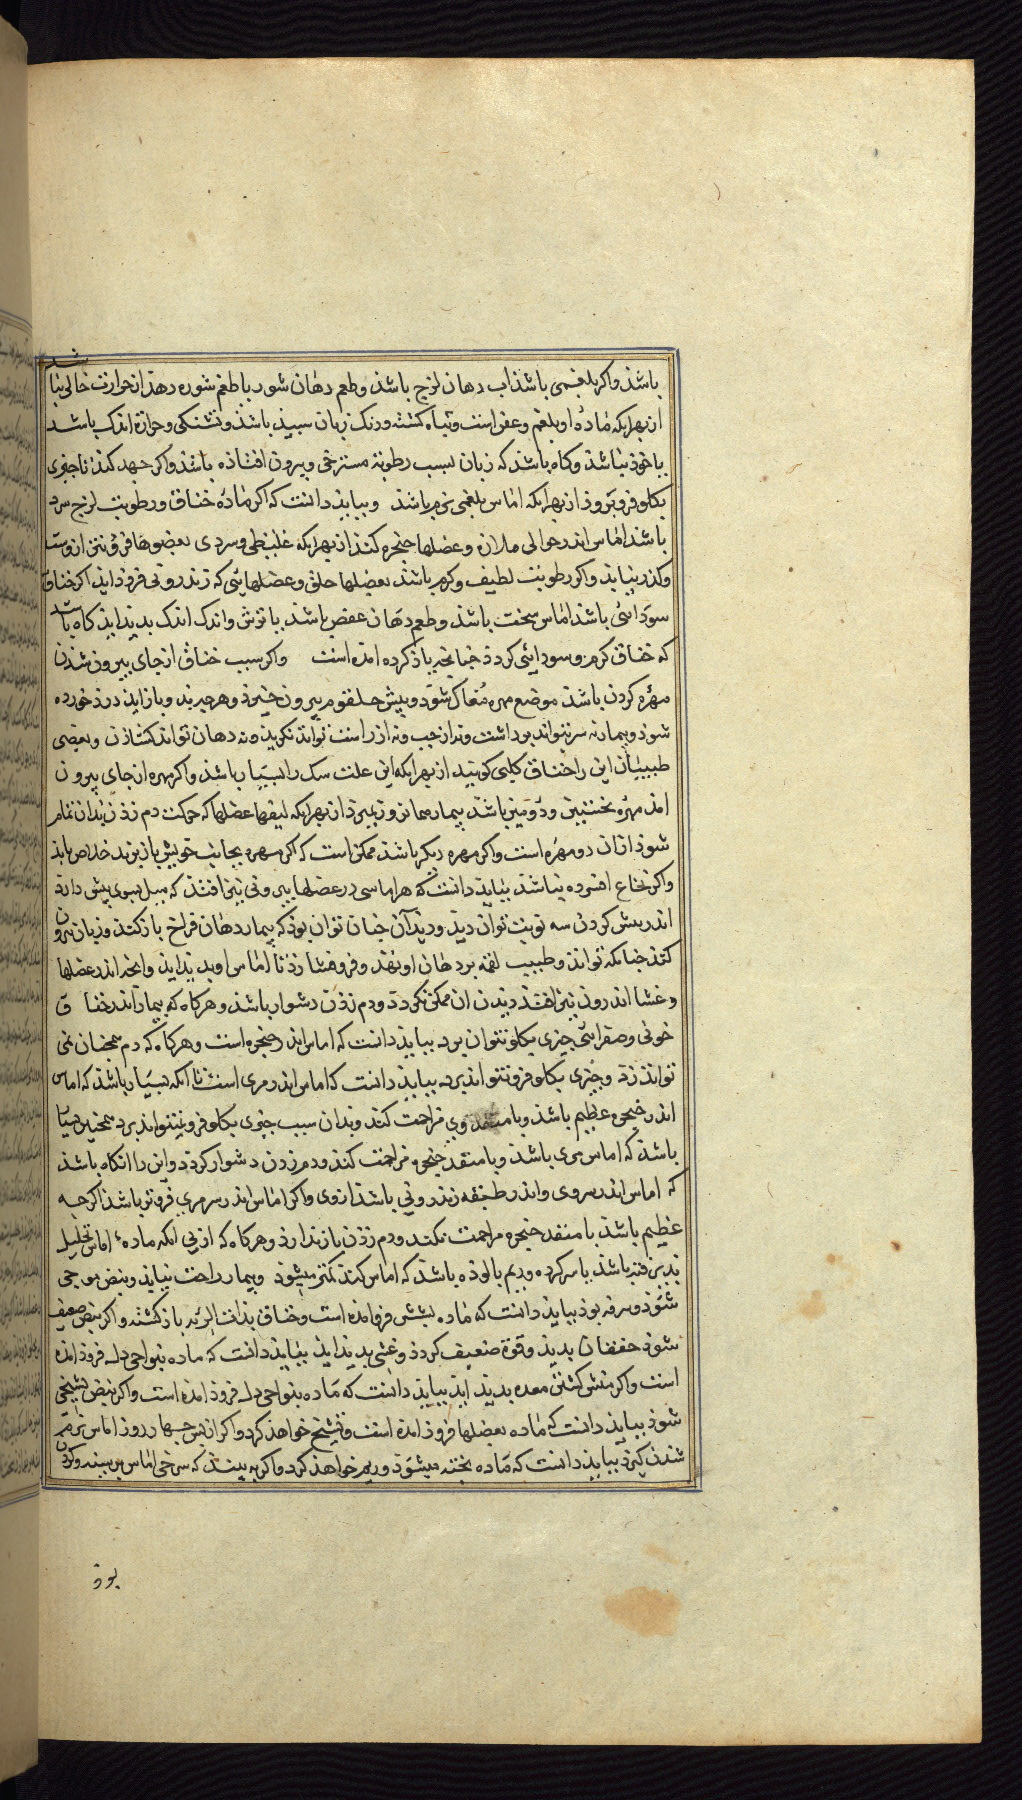 باشذ واکر بلغمی باشذ اب دهان لزج باشذ وطعم دهان شور باطعم شوره دهد از حرارت خالی نباشد
از بهر انکه ماده او بلغم وعفن است وتباه کشته ورنک زبان سپید باشذ وتشنکی وحرارة اندک باشد
یا خوذ نباشذ وکاه باشذ که زبان بسبب رطوبة مسترخی وبیرون افتاذه باشذ واکر جهد کند تا چیزی
بکلو فرو بروذ از بهر انکه اماس بلغمی نرم باشذ وببایذ دانست که اکر ماده خناق ورطوبت لزج سرد
باشذ اماس اندر حوالی ملازه وعضلها حنجره کند از بهر انکه غلیظی وسردی بعضوها فرو نتین از
وکذر نیابذ واکر رطوبت لطیف وکرم باشذ بعضلها حلق وعضلهائی که زندرونی فروذ ایذ اکر خناق
سودائی باشذ اماس سخت باشذ وطعم دهان عفص باشذ یا ترش واندک اندک بدیذ ایذ کاه باشد
که خناق کرم وسودائی کردذ چنانچه یاذ کرده امذه است واکر سبب خناق از جای بیرون شدن
مهره کردن باشذ موضع مهره مغاک شوذ وپیش حلقوم بیرون خیزذ وهرچه بذو بازایذ درد خورده
شوذ وبیمار نه سر نتواند بوداشت ونه از چپ ونه از راست تواند نکریذ ونه دهان تواند کشاذن وبعضی
طبیبان این را خناق کلبی کویند از بهر انکه این علت سک را بسیار باشذ واکر مهره از جای بیرون
امذ مهره نخستین ودومین باشذ بیمار همان روز بمیرذ از بهر انکه لیفها عضلها که حرکت دم زدن بدان تمام
شوذ از ان دو مهره است واکر مهره دیکر باشذ ممکن است که اکر مهره بجانب خویش باز برند خلاص یابذ
واکر نخاع افسرده نباشذ ببایذ دانست که هر اماسی در عضلها بیرونی نیز افتذ که میل بسوی پیش دارد
اندر پیش کردن سه نوبت توان دیذ ودیذ آن چنان توان بوذ که بیمار دهان فراخ باز کند وزبان بیرون
کند چنانکه تواند وطبیب لقمه بر دهان او نهذ وفرو فشارذ تا اماس او بدیذ ایذ وانچه اندر عضلها
وغشا اندرون نیز افتذ دیدن ان ممکن نکردد ودم زدن دشوار باشذ وهرکاه که بیمار اندر خناق
خونی وصفرائی چیزی بکلو نتوان برد ببایذ دانست که اماس اندر حنجره است وهرکاه که دم همچنان نمی
تواند زد وچیزی بکلو فرو نتواند برد ببایذ دانست که اماس اندر مری است تا انکه بسیار باشذ که اماس
اندر حنجره عظیم باشذ وبا منفذ وی مزاحمت کند وبدان سبب چیزی بکلو فرو نتواند برد همچنین بسیار
باشذ که اماس مری باشذ وبا منفذ حنجره مزاحمت کند ودم زدن دشوار کردد واین را انکاه باشذ
که اماس اندر سروی واندر طبقه زندرونی باشذ از وی واکر اماس اندر سر مری فروتر باشذ اکرچه
عظیم باشذ با منفذ حنجره مزاحمت نکند ودم زدن باز ندارذ وهرکاه که از پی انکه ماده اماس تحلیل
پذیرفته باشذ یا سر کرده وریم بالوذه باشذ که اماس کمتر میشوذ وبیمار راحت نیابذ ونبض موجی
شوذ وسرفه بوذ ببایذ دانست که ماده بشش فرو امذه است وخناق بذات الریه باز کشته واکر نبض ضعیف
شوذ خفقان بدیذ وقوة ضعیف کردذ وغشی بدیذ ایذ ببایذ دانست که ماده بنواحی دل فروذ امذه
است واکر منش کشتن معده بدیذ ایذ ببایذ دانست که ماده بنواحی دل فروذ امذه است واکر نبض بتشنجی
شوذ ببایذ دانست که ماده بعضلها فروذ امذه است وتشنج خواهذ کرد واکر از پس چهار روز اماس نرم تر
شدن کیرذ ببایذ دانست که ماده پخته میشوذ وریم خواهذ کرد واکر ببینذ که سرخی اماس بر سینه وکردن
بوذ